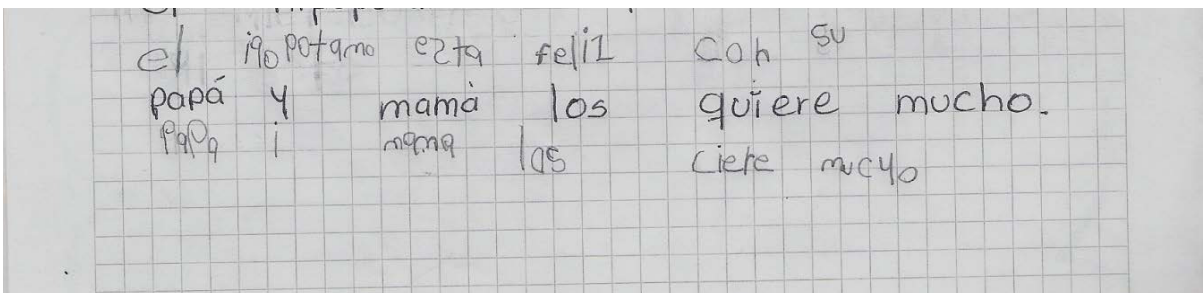 el ipopotamo ezta feliz con su
papá y mamá los quiere mucho.
papa i mama los ciere mucyo